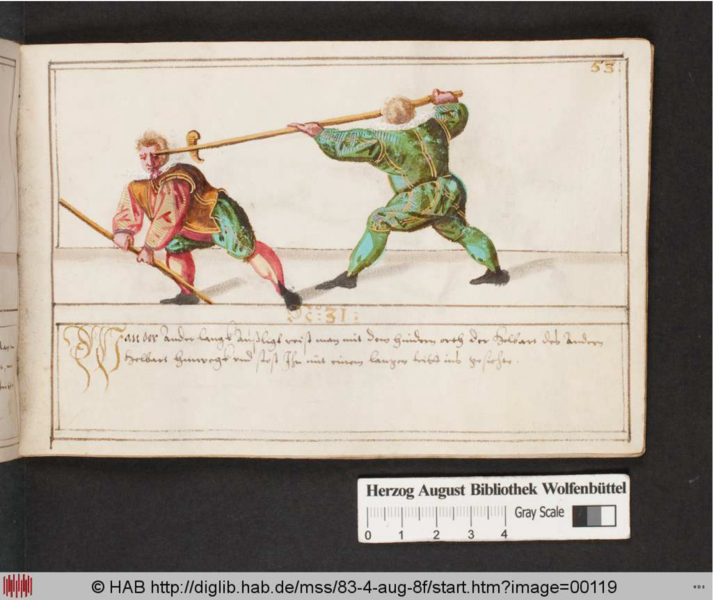 53.
No: 31.
Wan der Ander lang Außligt reist man mit dem hindern orth der Helbart des Andern
Helbart hinwegk und stost Ihn mit einem langen tritt ins gesichte.
Herzog August Bibliothek Wolfenbüttel
Gray Scale
0 1 2 3 4
© HAB http://diglib.hab.de/mss/83-4-aug-8f/start.htm?image=00119